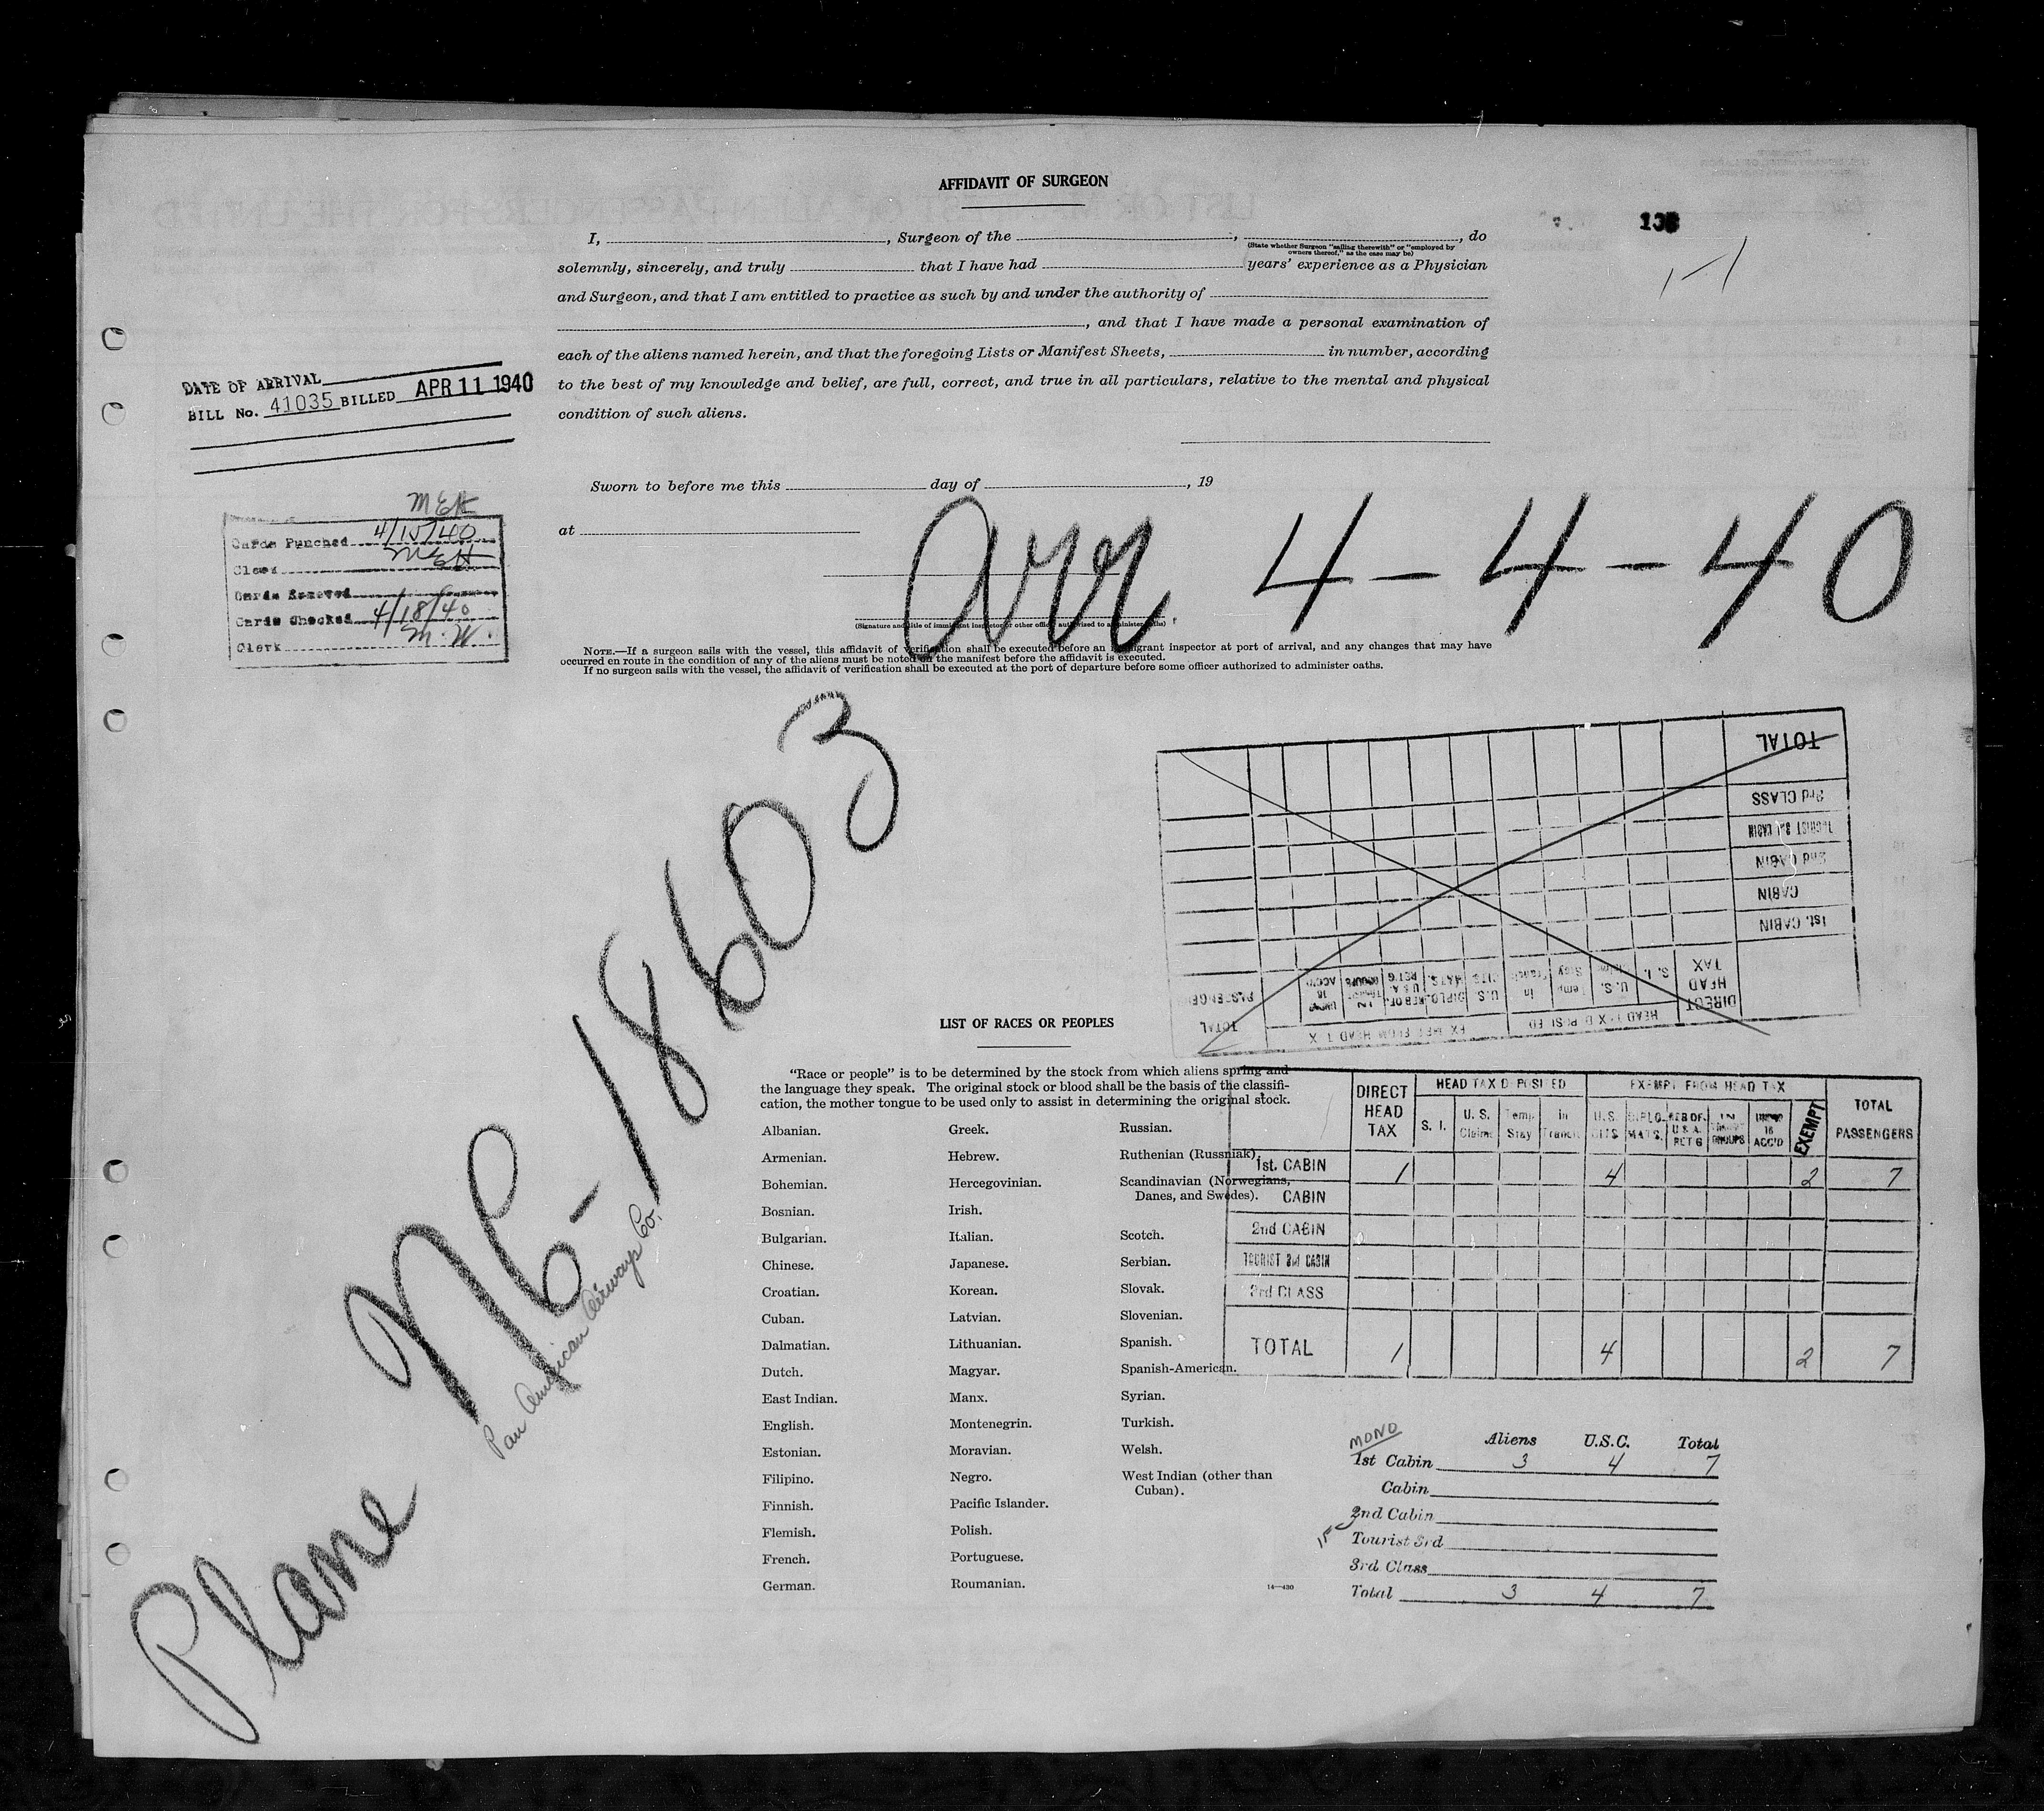 AFFIDAVIT OF SURGEON
I, , Surgeon of the , , do
(State whether Surgeon "sailing therewith" or "employed by
owners thereof," as the case may be)
solemnly, sincerely, and truly that I have had years' experience as a Physician
and Surgeon, and that I am entitled to practice as such by and under the authority of
, and that I have made a personal examination of
each of the aliens named herein, and that the foregoing Lists or Manifest Sheets, in number, according
to the best of my knowledge and belief, are full, correct, and true in all particulars, relative to the mental and physical
condition of such aliens.
DATE OF ARRIVAL
BILL No. 41035 BILLED APR 11 1940
Sworn to before me this day of , 19
at
MEH
Cards Punched 4/15/40
Clerk MEH
Cards Removed
Cards Checked 4/18/40
Clerk M.W.
Arr 4-4-40
(Signature and title of immigrant inspector or other officer authorized to administer oaths)
NOTE.—If a surgeon sails with the vessel, this affidavit of verification shall be executed before an immigrant inspector at port of arrival, and any changes that may have
occurred en route in the condition of any of the aliens must be noted on the manifest before the affidavit is executed.
If no surgeon sails with the vessel, the affidavit of verification shall be executed at the port of departure before some officer authorized to administer oaths.
Plane NC-18603
Pan American Airways Co.
TOTAL
3rd CLASS
TOURIST 3rd CABIN
2nd CABIN
CABIN
1st. CABIN
DIRECT HEAD TAX
S. I.
U.S.
TOTAL PASSENGERS
HEAD TAX DEPOSITED
EXEMPT FROM HEAD TAX
LIST OF RACES OR PEOPLES
"Race or people" is to be determined by the stock from which aliens spring and
the language they speak. The original stock or blood shall be the basis of the classifi-
cation, the mother tongue to be used only to assist in determining the original stock.
Albanian.
Armenian.
Bohemian.
Bosnian.
Bulgarian.
Chinese.
Croatian.
Cuban.
Dalmatian.
Dutch.
East Indian.
English.
Estonian.
Filipino.
Finnish.
Flemish.
French.
German.
Greek.
Hebrew.
Hercegovinian.
Irish.
Italian.
Japanese.
Korean.
Latvian.
Lithuanian.
Magyar.
Manx.
Montenegrin.
Moravian.
Negro.
Pacific Islander.
Polish.
Portuguese.
Roumanian.
Russian.
Ruthenian (Russniak).
Scandinavian (Norwegians,
Danes, and Swedes).
Scotch.
Serbian.
Slovak.
Slovenian.
Spanish.
Spanish-American.
Syrian.
Turkish.
Welsh.
West Indian (other than
Cuban).
14—430
DIRECT HEAD TAX
HEAD TAX DEPOSITED
EXEMPT FROM HEAD TAX
TOTAL PASSENGERS
S. I.
U. S. Claims
Temp. Stay
In Transit
U.S. CITS
DIPLOMATS.
RES OF. U.S.A. RET'G
IN TRANSIT GROUPS
UNDER 16 ACC'D
EXEMPT
1st. CABIN 1 4 2 7
CABIN
2nd CABIN
TOURIST 3rd CABIN
3rd CLASS
TOTAL 1 4 2 7
MONO
Aliens U.S.C. Total
1st Cabin 3 4 7
Cabin
2nd Cabin
Tourist 3rd
3rd Class
Total 3 4 7